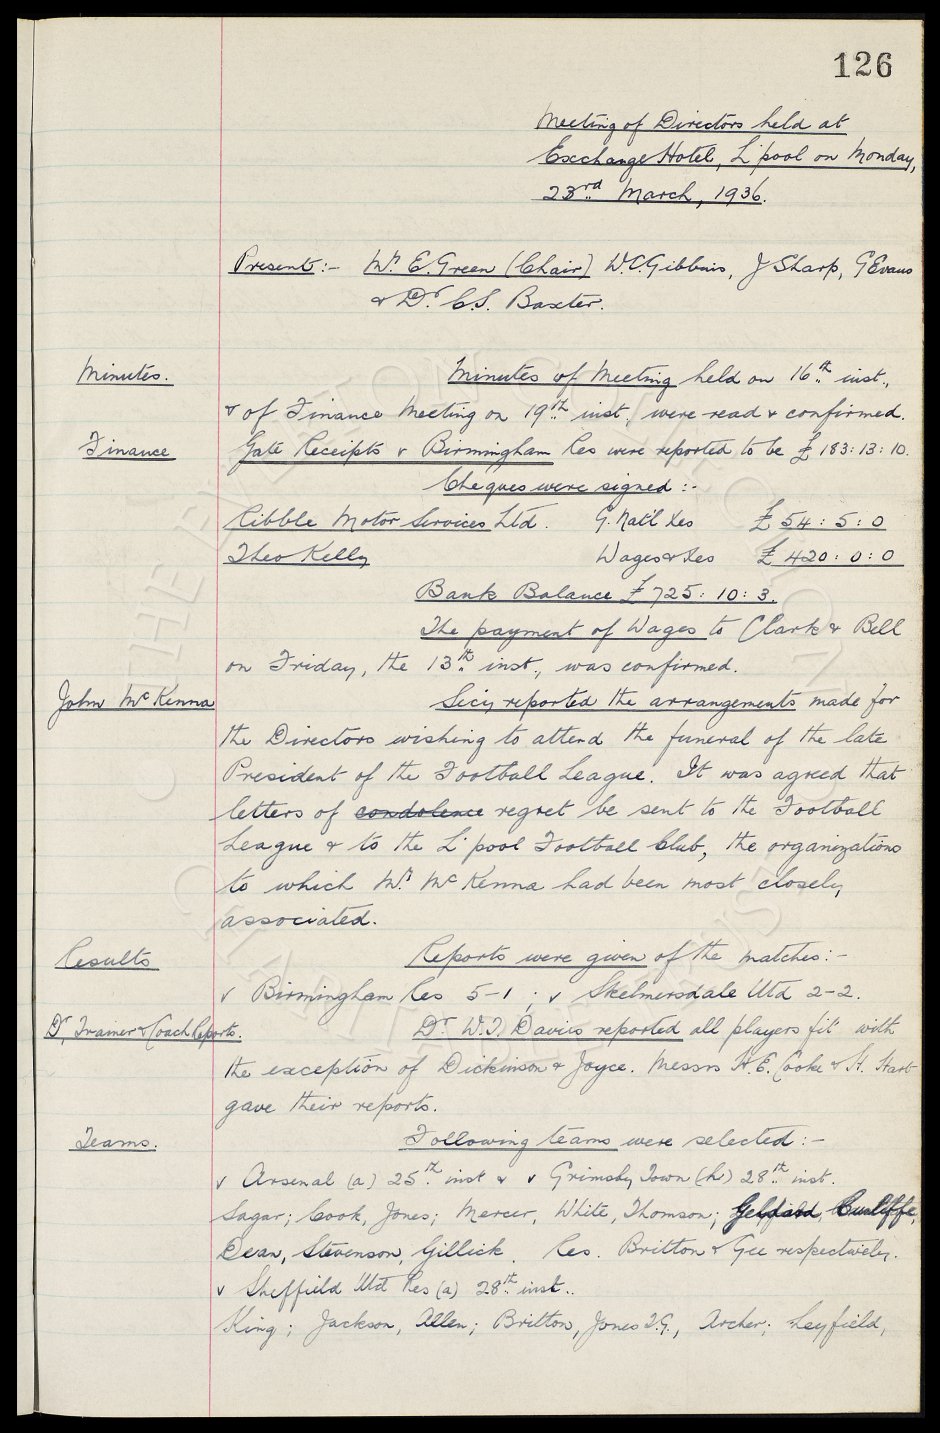 126
Meeting of Directors held at
Exchange Hotel, L'pool on Monday,
23rd March, 1936.
Present:- Mr. E. Green (Chair) W.C. Gibbins, J Sharp, G Evans
& Dr. C.S. Baxter.
Minutes. Minutes of Meeting held on 16th inst.,
& of Finance Meeting on 19th inst., were read & confirmed.
Finance Gate Receipts v Birmingham Res were reported to be £183:13:10.
Cheques were signed:-
Ribble Motor Services Ltd. G. Nat'l Xes £54:5:0
Theo Kelly Wages & Xes £420:0:0
Bank Balance £725:10:3.
The payment of Wages to Clark & Bell
on Friday, the 13th inst., was confirmed.
John McKenna Secy reported the arrangements made for
the Directors wishing to attend the funeral of the late
President of the Football League. It was agreed that
letters of condolence regret be sent to the Football
League & to the L'pool Football Club, the organizations
to which Mr. McKenna had been most closely
associated.
Results Reports were given of the matches:-
v Birmingham Res 5-1; v Skelmersdale Utd 2-2.
Dr, Trainer & Coach Reports. Dr. W.T. Davies reported all players fit with
the exception of Dickinson & Joyce. Messrs H.E. Cooke & H. Hart
gave their reports.
Teams. Following teams were selected:-
v Arsenal (a) 25th inst & v Grimsby Town (h) 28th inst.
Sagar; Cook, Jones; Mercer, White, Thomson; Geldard, Cunliffe,
Dean, Stevenson, Gillick. Res. Britton & Gee respectively.
v Sheffield Utd Res (a) 28th inst..
King; Jackson, Allen; Britton, Jones T.G., Archer; Leyfield,
THE EVERTON FOOTBALL